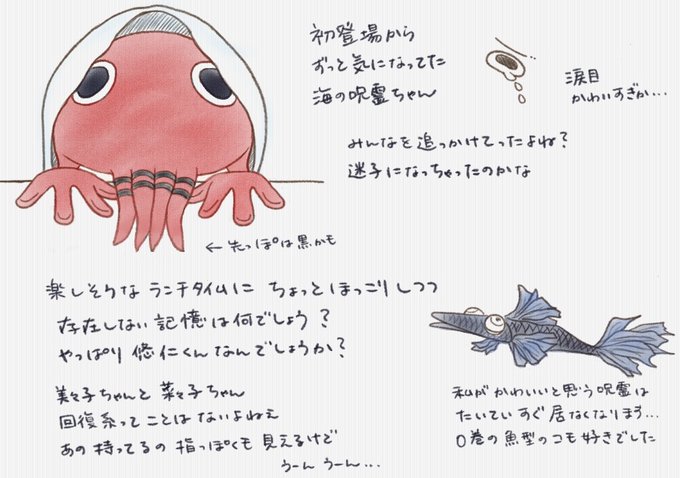 初登場から
ずっと気になってた
海の呪霊ちゃん
涙目
かわいすぎか…
みんなを追っかけてったよね？
迷子になっちゃったのかな
← 先っぽは黒かも
楽しそうな ランチタイムに ちょっとほっこりしつつ
存在しない記憶は何でしょう？
やっぱり 悠仁くんなんでしょうか？
美々子ちゃんと 菜々子ちゃん
回復系ってことは ないよねえ
あの持ってるの 指っぽくも 見えるけど
うーん うーん…
私がかわいいと思う呪霊は
たいてい すぐ 居なくなります…
0巻の魚型のコも好きでした